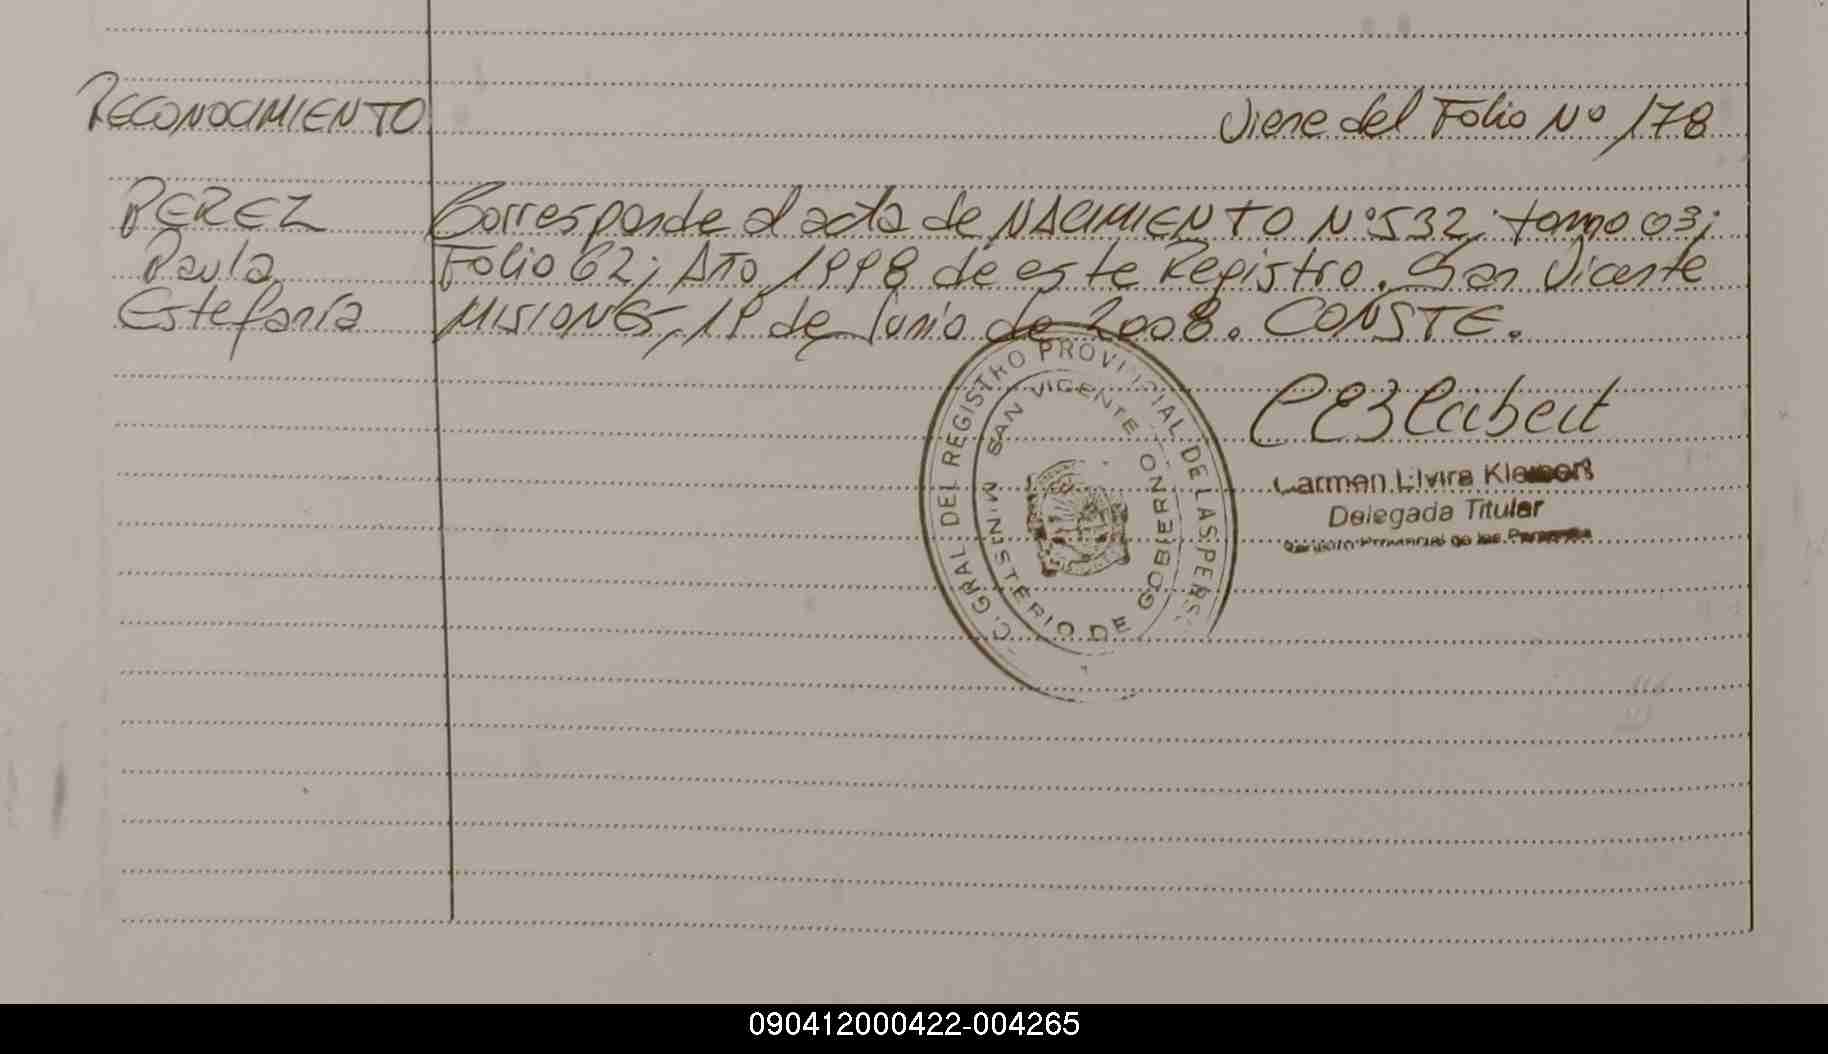 RECONOCIMIENTO
Viene del Folio Nº 178
PEREZ
Paula
Estefanía
Corresponde al acta de NACIMIENTO Nº 532; tomo 03;
Folio 62; Año 1998 de este Registro. San Vicente
MISIONES, 19 de Junio de 2008. CONSTE.
C. GRAL DEL REGISTRO PROVINCIAL DE LAS PERS.
SAN VICENTE
MINISTERIO DE GOBIERNO
Carmen Elvira
Delegada Titular
Provincial de las
090412000422-004265